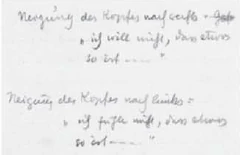 Neigung des Kopfes nach rechts -
„ ich will nicht, dass etwas
so ist ---- "
Neigung des Kopfes nach links -
„ ich fühle nicht, dass etwas
so ist ---- "